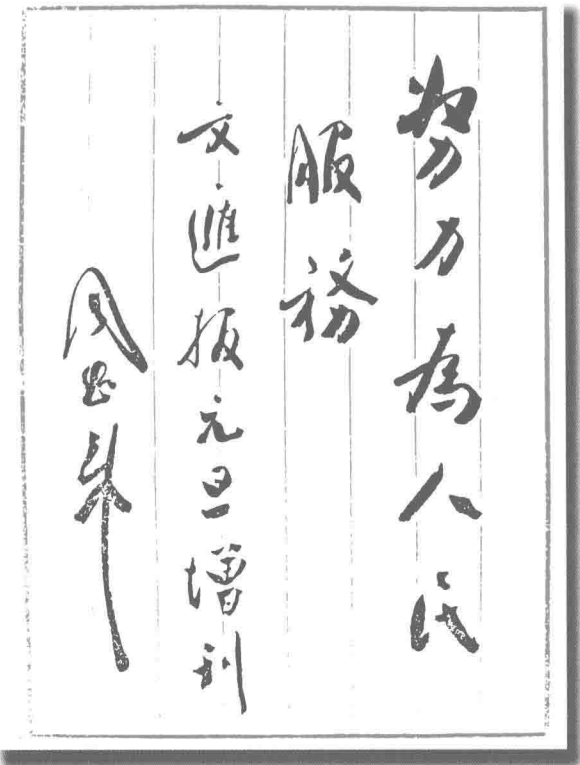 努力為人民
服務
文匯报元旦增刊
周恩来